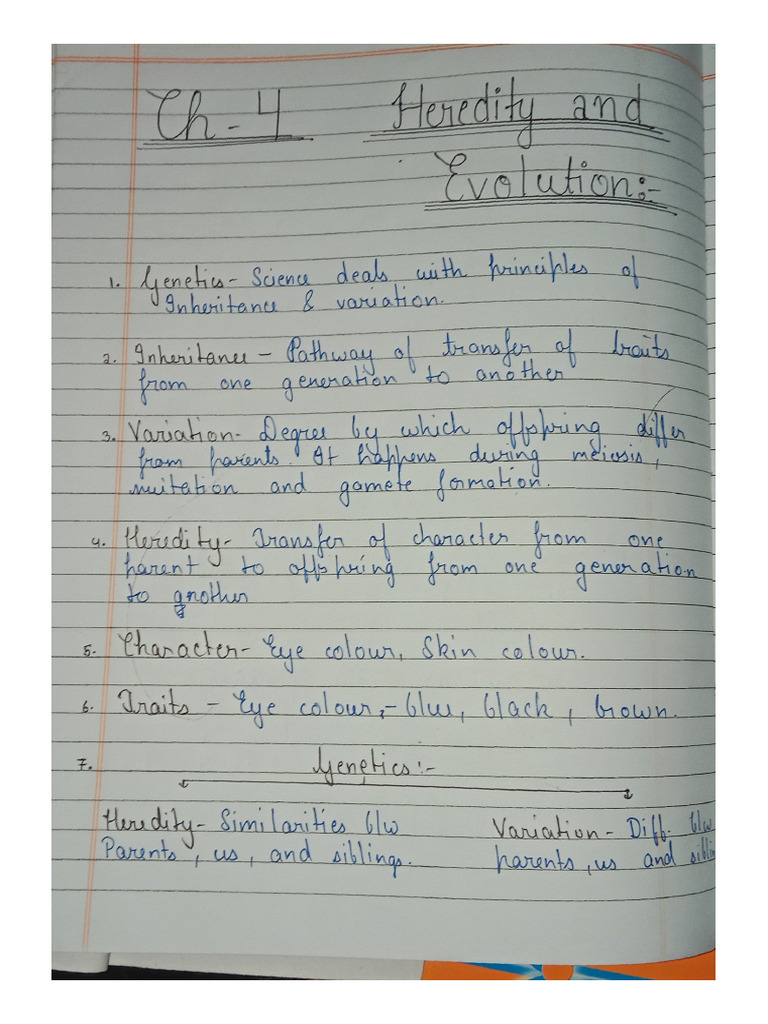 Ch-4 Heredity and
Evolution:-
1. Genetics- Science deals with principles of
Inheritance & variation.
2. Inheritance - Pathway of transfer of traits
from one generation to another
3. Variation- Degree by which offspring differ
from parents. It happens during meiosis,
mutation and gamete formation.
4. Heredity- Transfer of character from one
parent to offspring from one generation
to another
5. Character- Eye colour, Skin colour.
6. Traits - Eye colour,- blue, black, brown.
7. Genetics:-
Heredity- Similarities b/w Variation- Diff. b/w
Parents, us, and siblings. parents, us and siblin